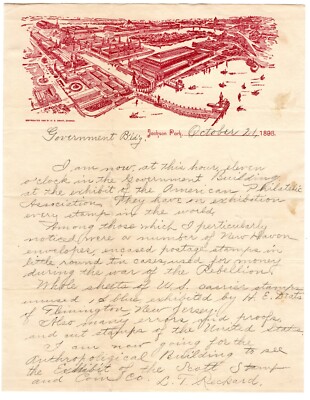 Government Bldg, Jackson Park, October 21, 1893.
I am now, at this hour, eleven
o'clock in the Government Building,
at the exhibit of the American Philatelic
Association. They have on exhibition
every stamp in the world.
Among those which I particularly
noticed were a number of New Haven
envelopes, encased postage stamps in
little round tin cases, used for money
during the war of the Rebellion.
Whole sheets of U.S. carrier stamps
unused is also exhibited by H. E. Deats
of Flemington New Jersey.
Also many errors, and proofs,
and cut stamps of the United States.
I am now going for the
Anthropological Building to see
the Exhibit of the Scott Stamp
and Coin Co. L. T.